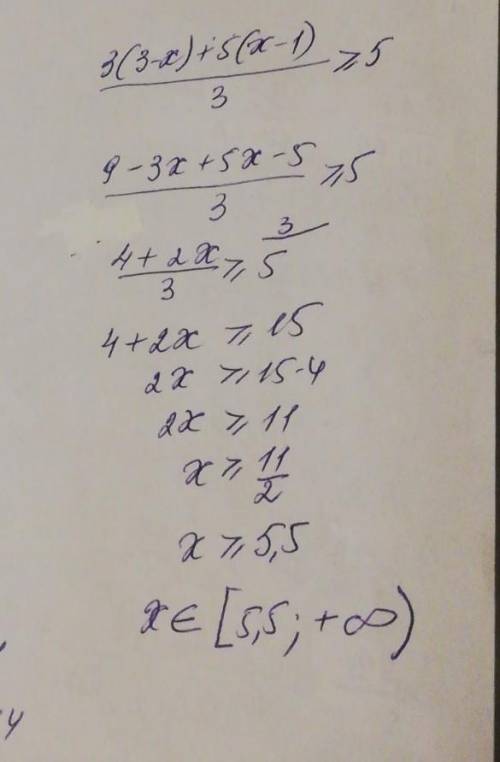 3(3-x)+5(x-1)/3 ⩾ 5
9-3x+5x-5/3 ⩾ 5
4+2x/3 ⩾ 5 3/
4+2x ⩾ 15
2x ⩾ 15-4
2x ⩾ 11
x ⩾ 11/2
x ⩾ 5,5
x ∈ [5,5; +∞)